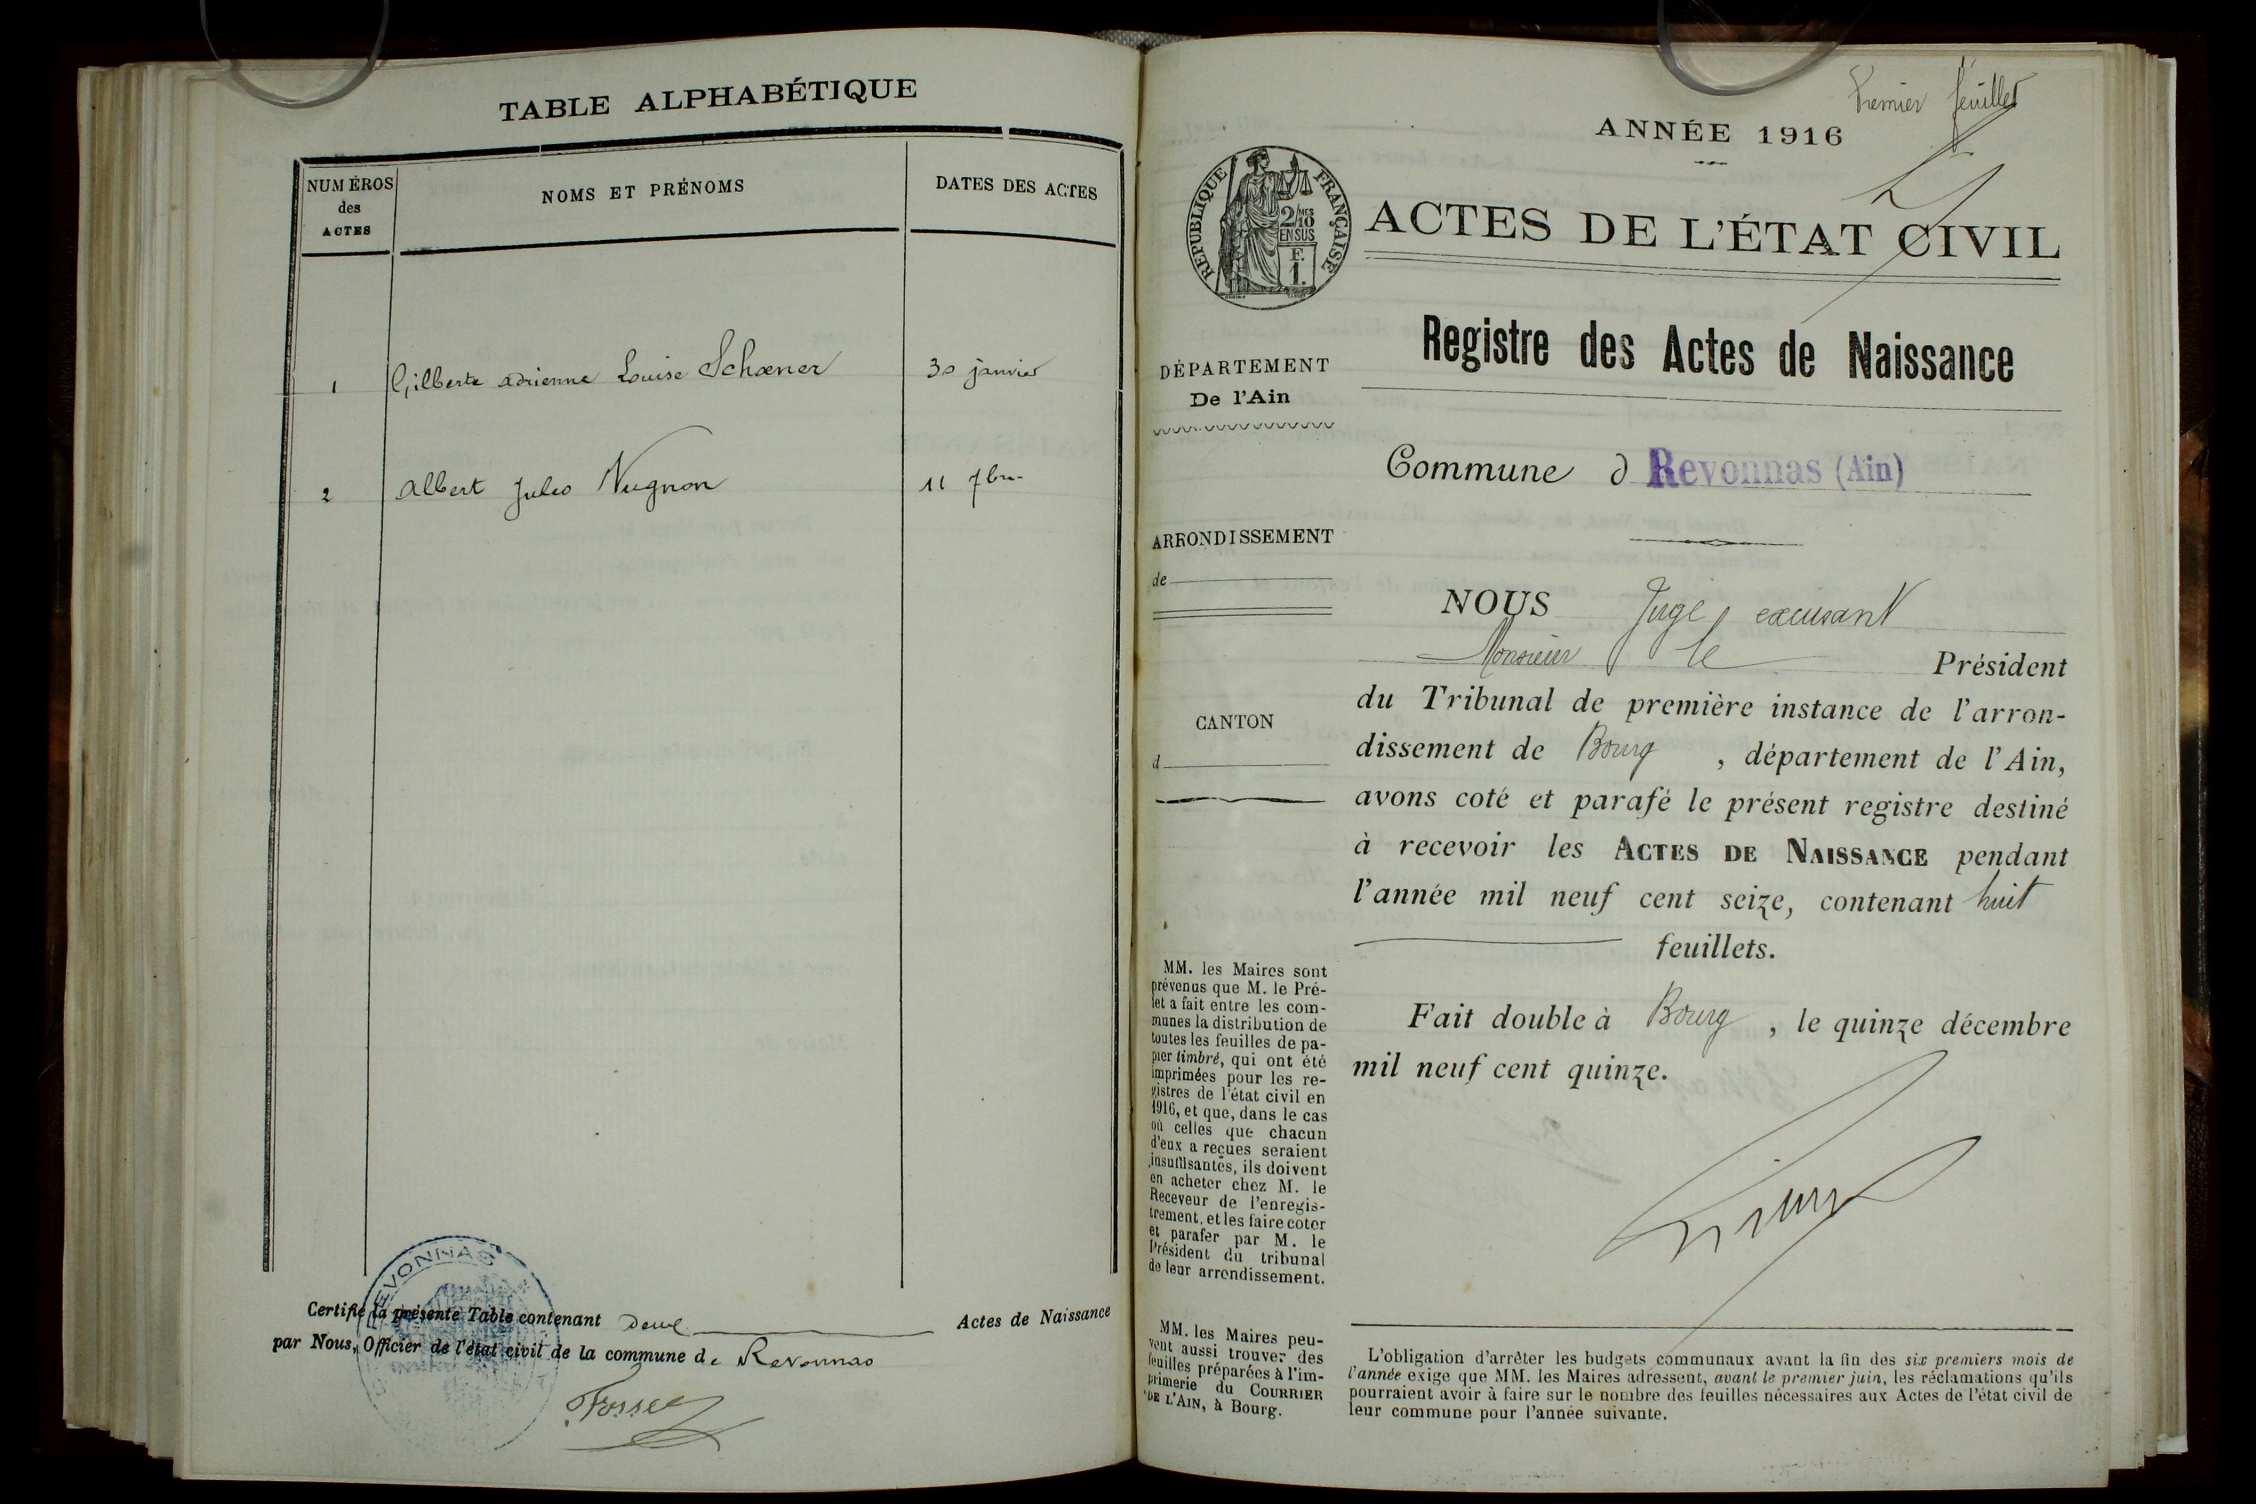 TABLE ALPHABÉTIQUE
NUMÉROS
des
ACTES
NOMS ET PRÉNOMS
DATES DES ACTES
1 Gilberte Adrienne Louise Schœner 30 janvier
2 Albert Jules Nugnon 11 7bre
Certifié la présente Table contenant deux Actes de Naissance
par Nous, Officier de l'état civil de la commune de Revonnas
REVONNAS
Premier feuillet
ANNÉE 1916
RÉPUBLIQUE FRANÇAISE
2/10MES
EN SUS
F.
1.
ACTES DE L'ÉTAT CIVIL
Registre des Actes de Naissance
DÉPARTEMENT
De l'Ain
Commune d Revonnas (Ain)
ARRONDISSEMENT
de
CANTON
d
NOUS Juge excusant
Monsieur le Président
du Tribunal de première instance de l'arron-
dissement de Bourg, département de l'Ain,
avons coté et parafé le présent registre destiné
à recevoir les ACTES DE NAISSANCE pendant
l'année mil neuf cent seize, contenant huit
feuillets.
Fait double à Bourg, le quinze décembre
mil neuf cent quinze.
MM. les Maires sont
prévenus que M. le Pré-
fet a fait entre les com-
munes la distribution de
toutes les feuilles de pa-
pier timbré, qui ont été
imprimées pour les re-
gistres de l'état civil en
1916, et que, dans le cas
où celles que chacun
d'eux a reçues seraient
insuffisantes, ils doivent
en acheter chez M. le
Receveur de l'enregis-
trement, et les faire coter
et parafer par M. le
Président du tribunal
de leur arrondissement.
MM. les Maires peu-
vent aussi trouver des
feuilles préparées à l'im-
primerie du COURRIER
DE L'AIN, à Bourg.
L'obligation d'arrêter les budgets communaux avant la fin des six premiers mois de
l'année exige que MM. les Maires adressent, avant le premier juin, les réclamations qu'ils
pourraient avoir à faire sur le nombre des feuilles nécessaires aux Actes de l'état civil de
leur commune pour l'année suivante.